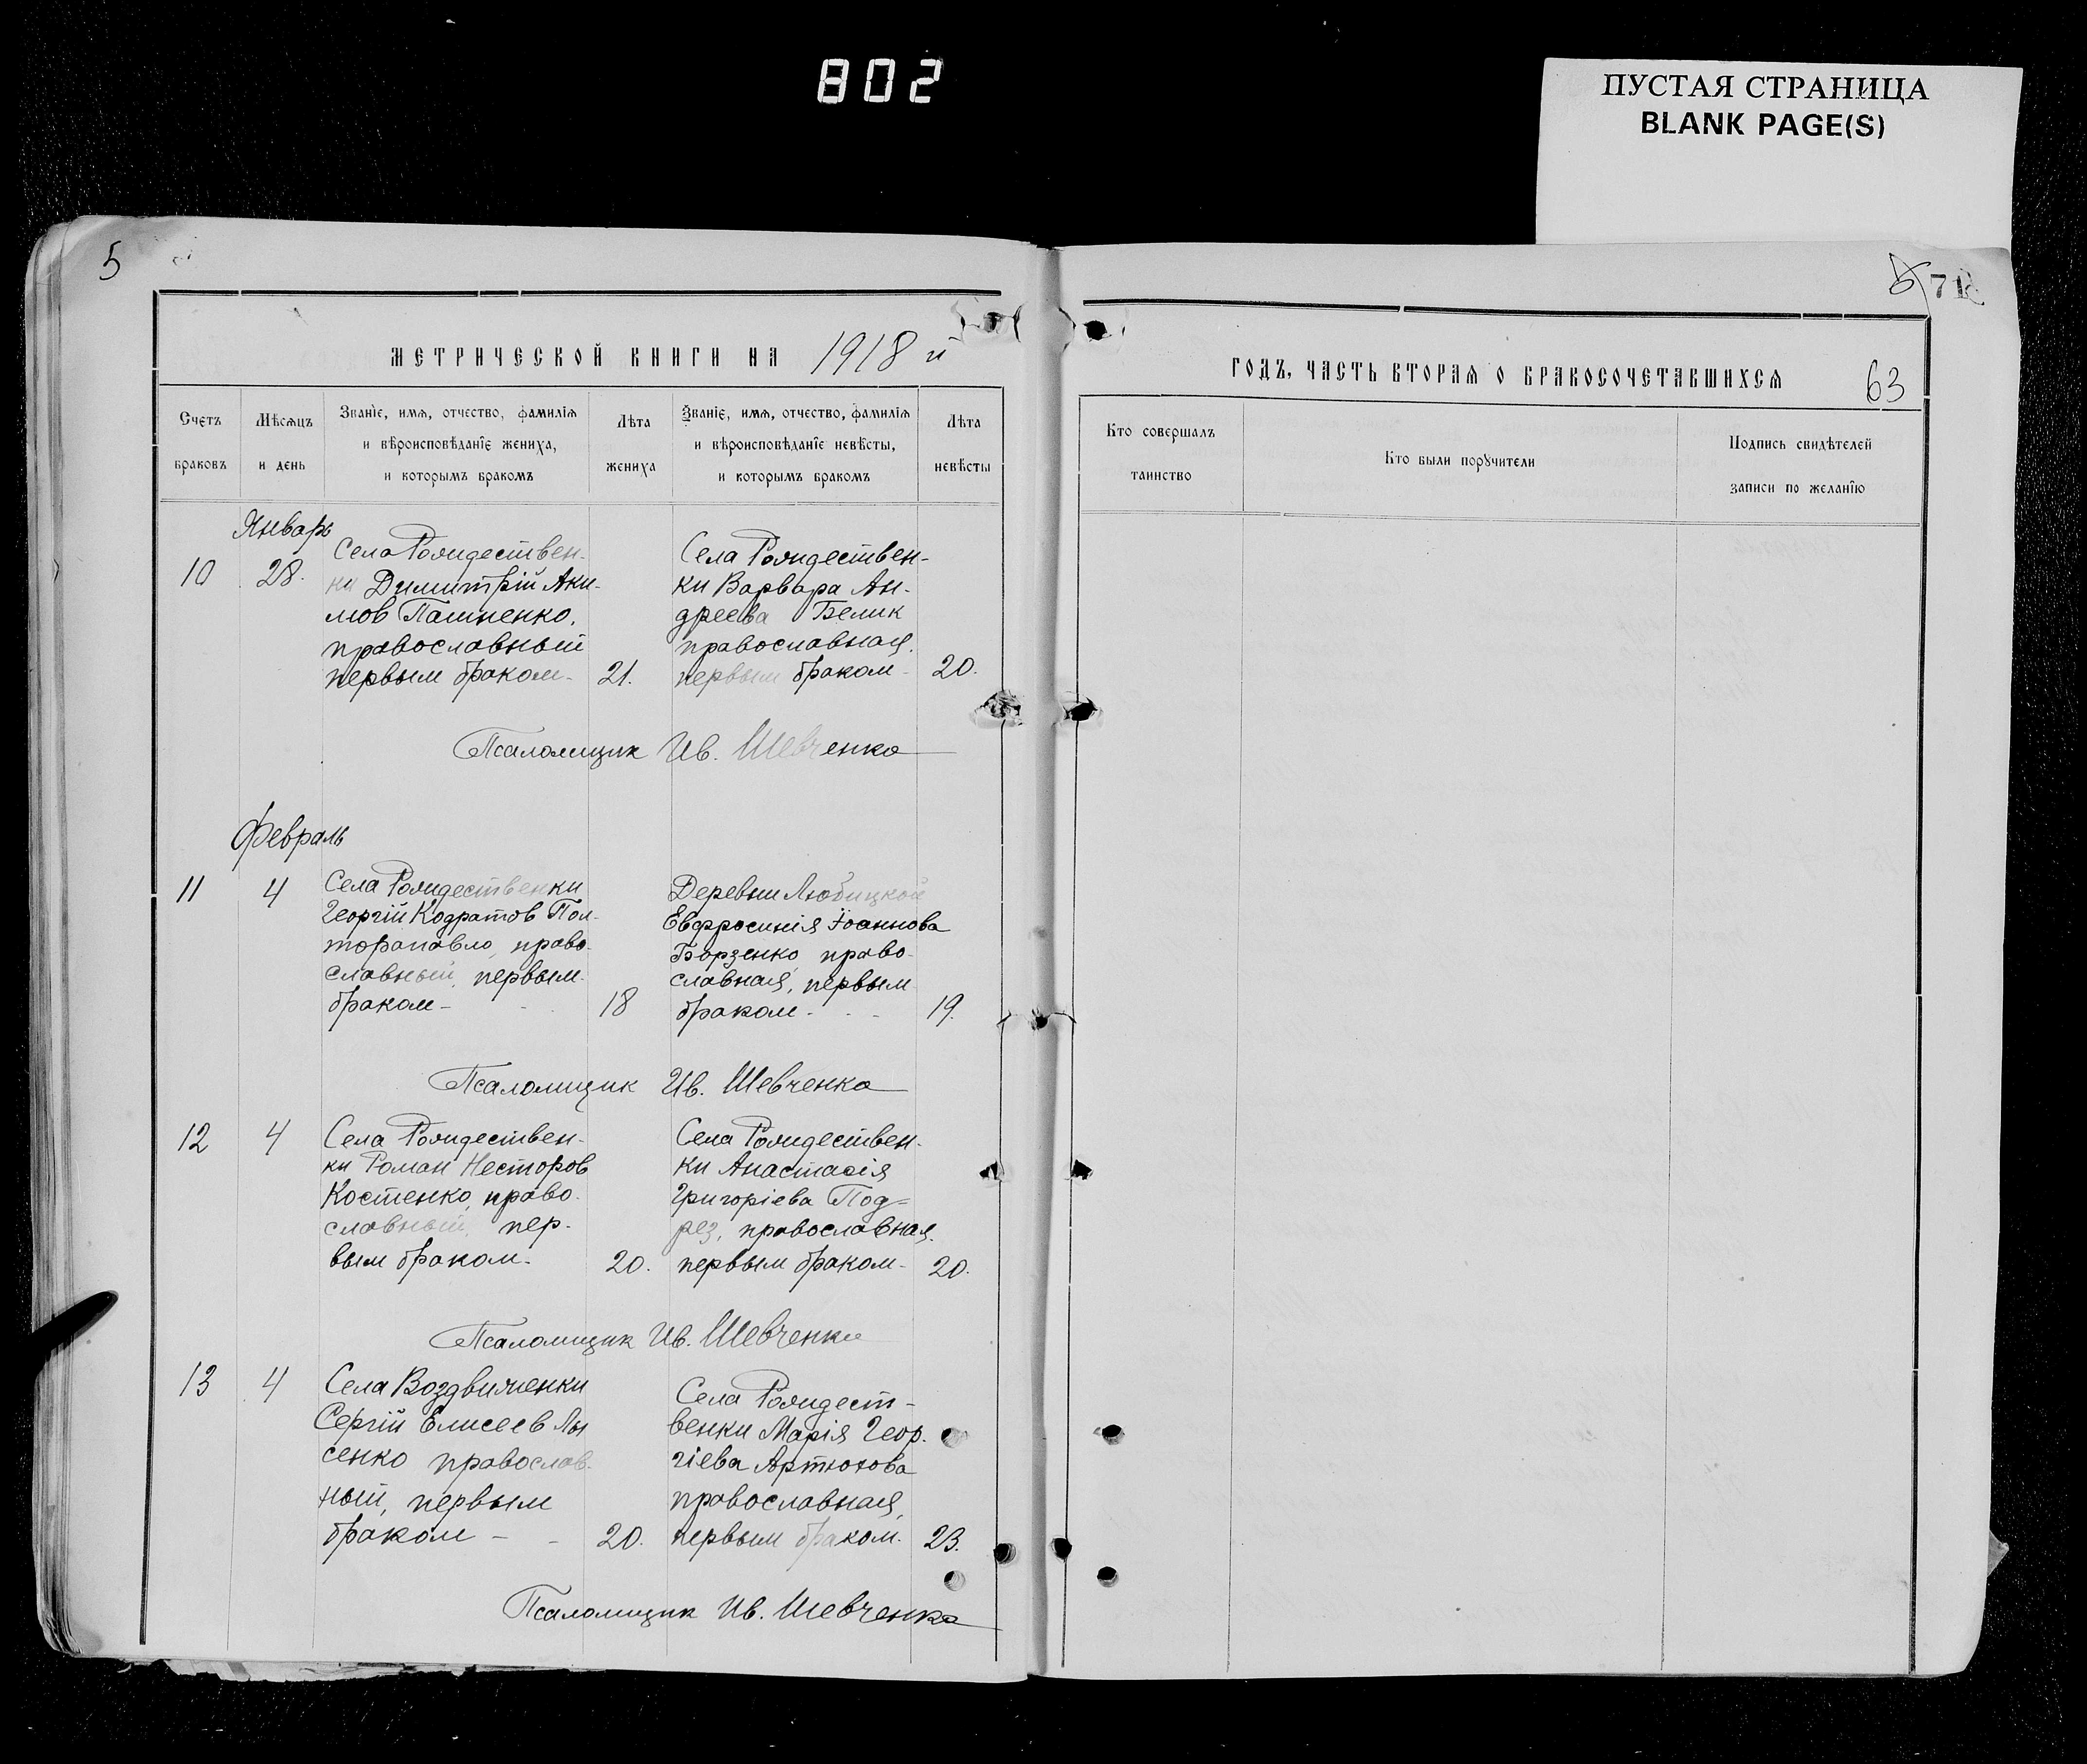 802
ПУСТАЯ СТРАНИЦА
BLANK PAGE(S)
5
71
МЕТРИЧЕСКОЙ КНИГИ НА 1918 й
ГОДЪ, ЧАСТЬ ВТОРАЯ О БРАКОСОЧЕТАВШИХСЯ
63
Счетъ
браковъ
Мѣсяцъ
и день
Званіе, имя, отчество, фамилія
и вѣроисповѣданіе жениха,
и которымъ бракомъ
Лѣта
жениха
Званіе, имя, отчество, фамилія
и вѣроисповѣданіе невѣсты,
и которымъ бракомъ
Лѣта
невѣсты
Кто совершалъ
таинство
Кто были поручители
Подпись свидѣтелей
записи по желанію
Январь
10
28.
Села Рождествен-
ки Димитрій Аки-
мов Пашненко,
православный
первым браком-
21.
Села Рождествен-
ки Варвара Ан-
дреева Белик
православная,
первым браком-
20.
Псаломщик Ив. Шевченко
Февраль
11
4
Села Рождественки
Георгій Кодратов Пол-
торапавло, право-
славный, первым-
браком-
18
Деревни Любицкой
Евфросинія Іоаннова
Борзенко право-
славная, первым
браком-
19.
Псаломщик Ив. Шевченко
12
4
Села Рождествен-
ки Роман Несторов
Костенко, право-
славный, пер-
вым браком-
20.
Села Рождествен-
ки Анастасія
Григоріева Под=
рез, православная,
первым браком-
20.
Псаломщик Ив. Шевченко
13
4
Села Воздвиженки
Сергій Елисеев Лы
сенко православ-
ный, первым
браком -
20.
Села Рождест-
венки Марія Геор-
гіева Артюхова
православная,
первым браком.
23.
Псаломщик Ив. Шевченко